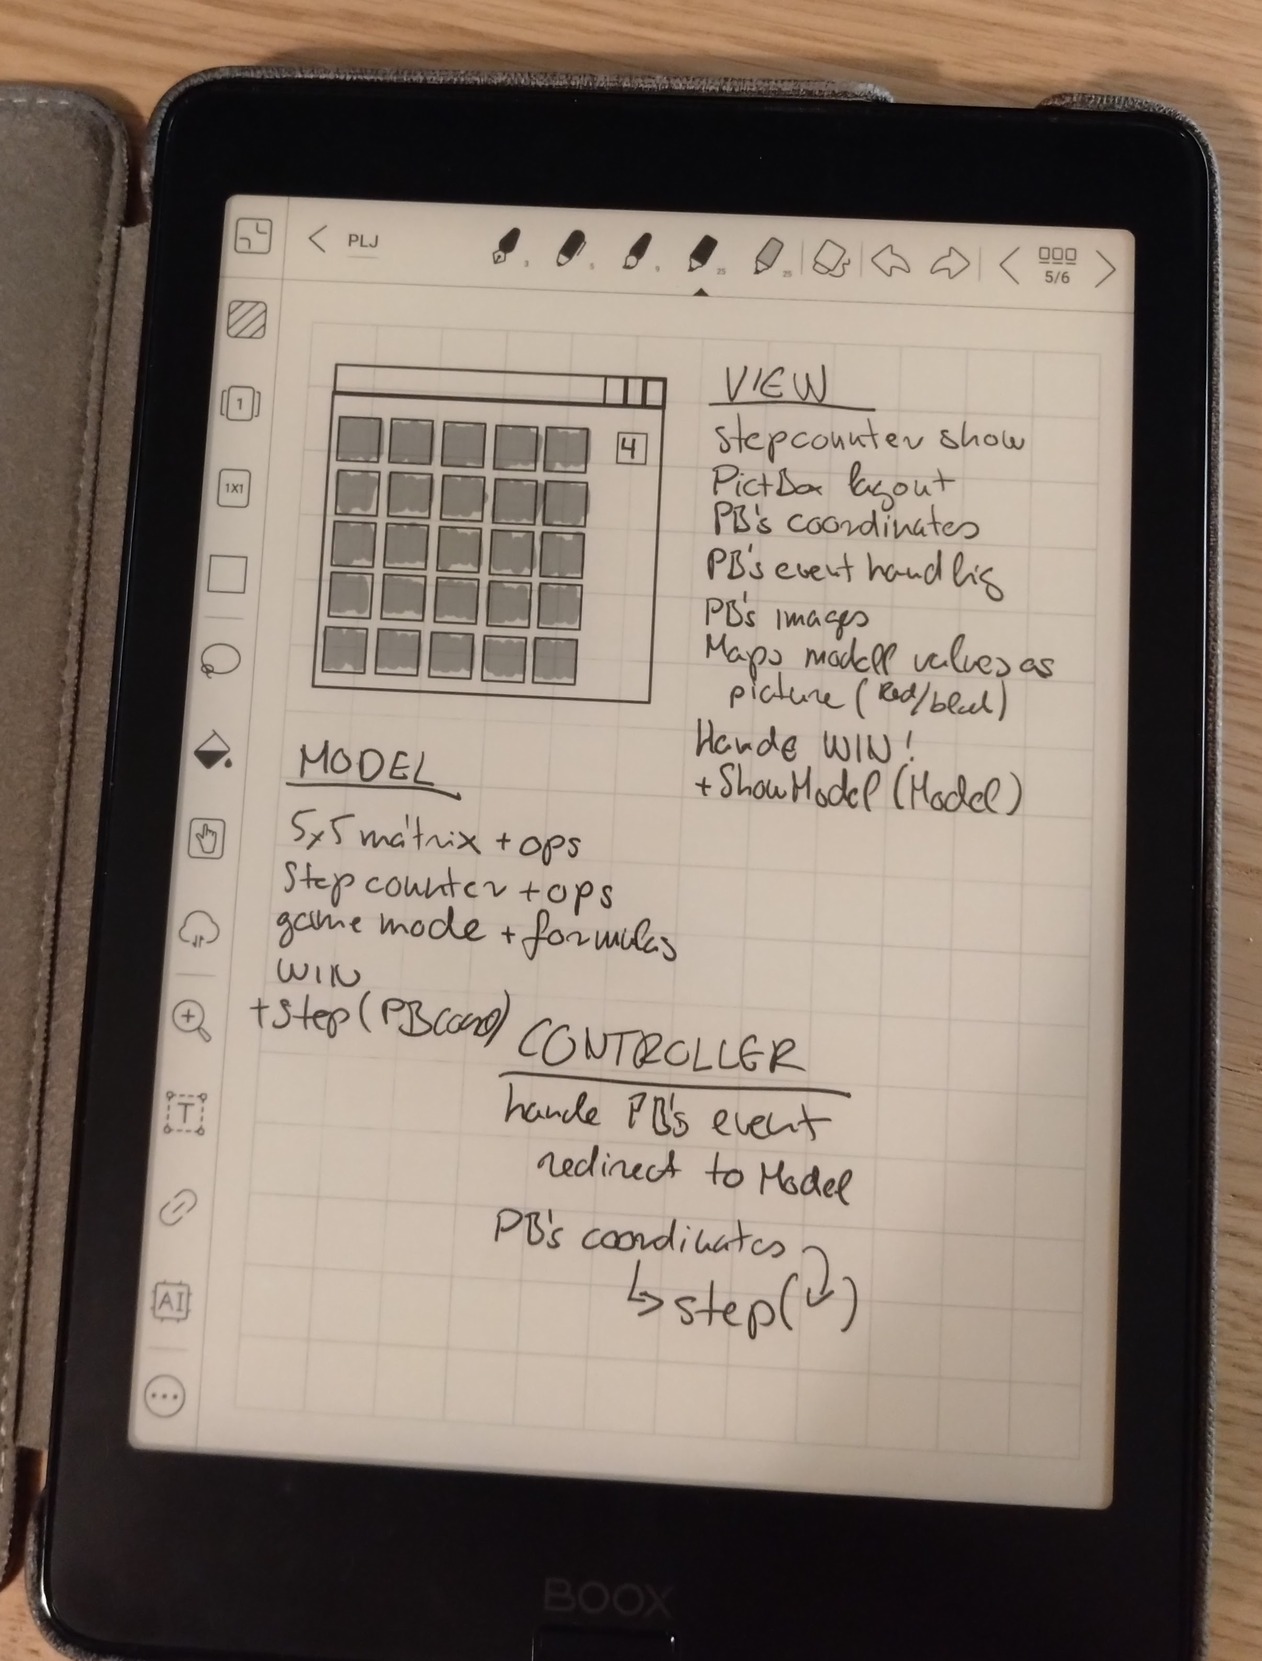 PLJ
5/6
1
1X1
T
AI
4
VIEW
stepcounter show
PictBox layout
PB's coordinates
PB's event handlig
PB's images
Maps modell values as
picture (Red/black)
Hande WIN!
+ShowModel(Model)
MODEL
5x5 mátrix + ops
Step counter + ops
game mode + formulas
WIN
+step(PBcoord)
CONTROLLER
hande PB's event
redirect to Model
PB's coordinates
↳ step( )
BOOX